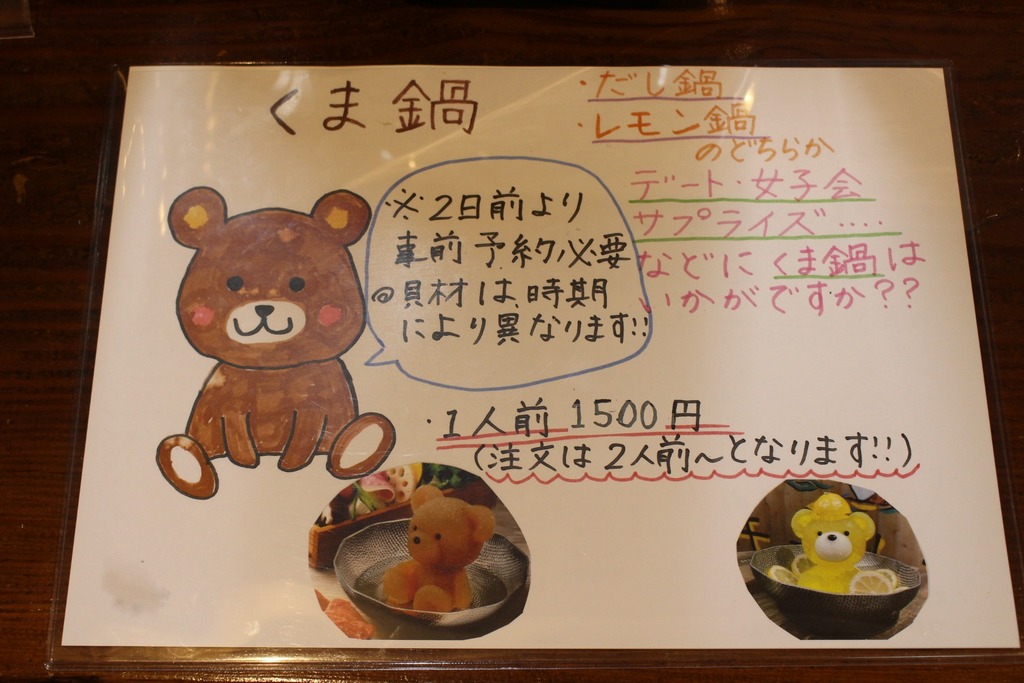 くま鍋
・だし鍋
・レモン鍋
のどちらか
デート・女子会
サプライズ‥‥
などにくま鍋は
いかがですか??
※2日前より
事前予約必要
@具材は、時期
により異なります!!
・1人前 1500円
(注文は2人前～となります!!)